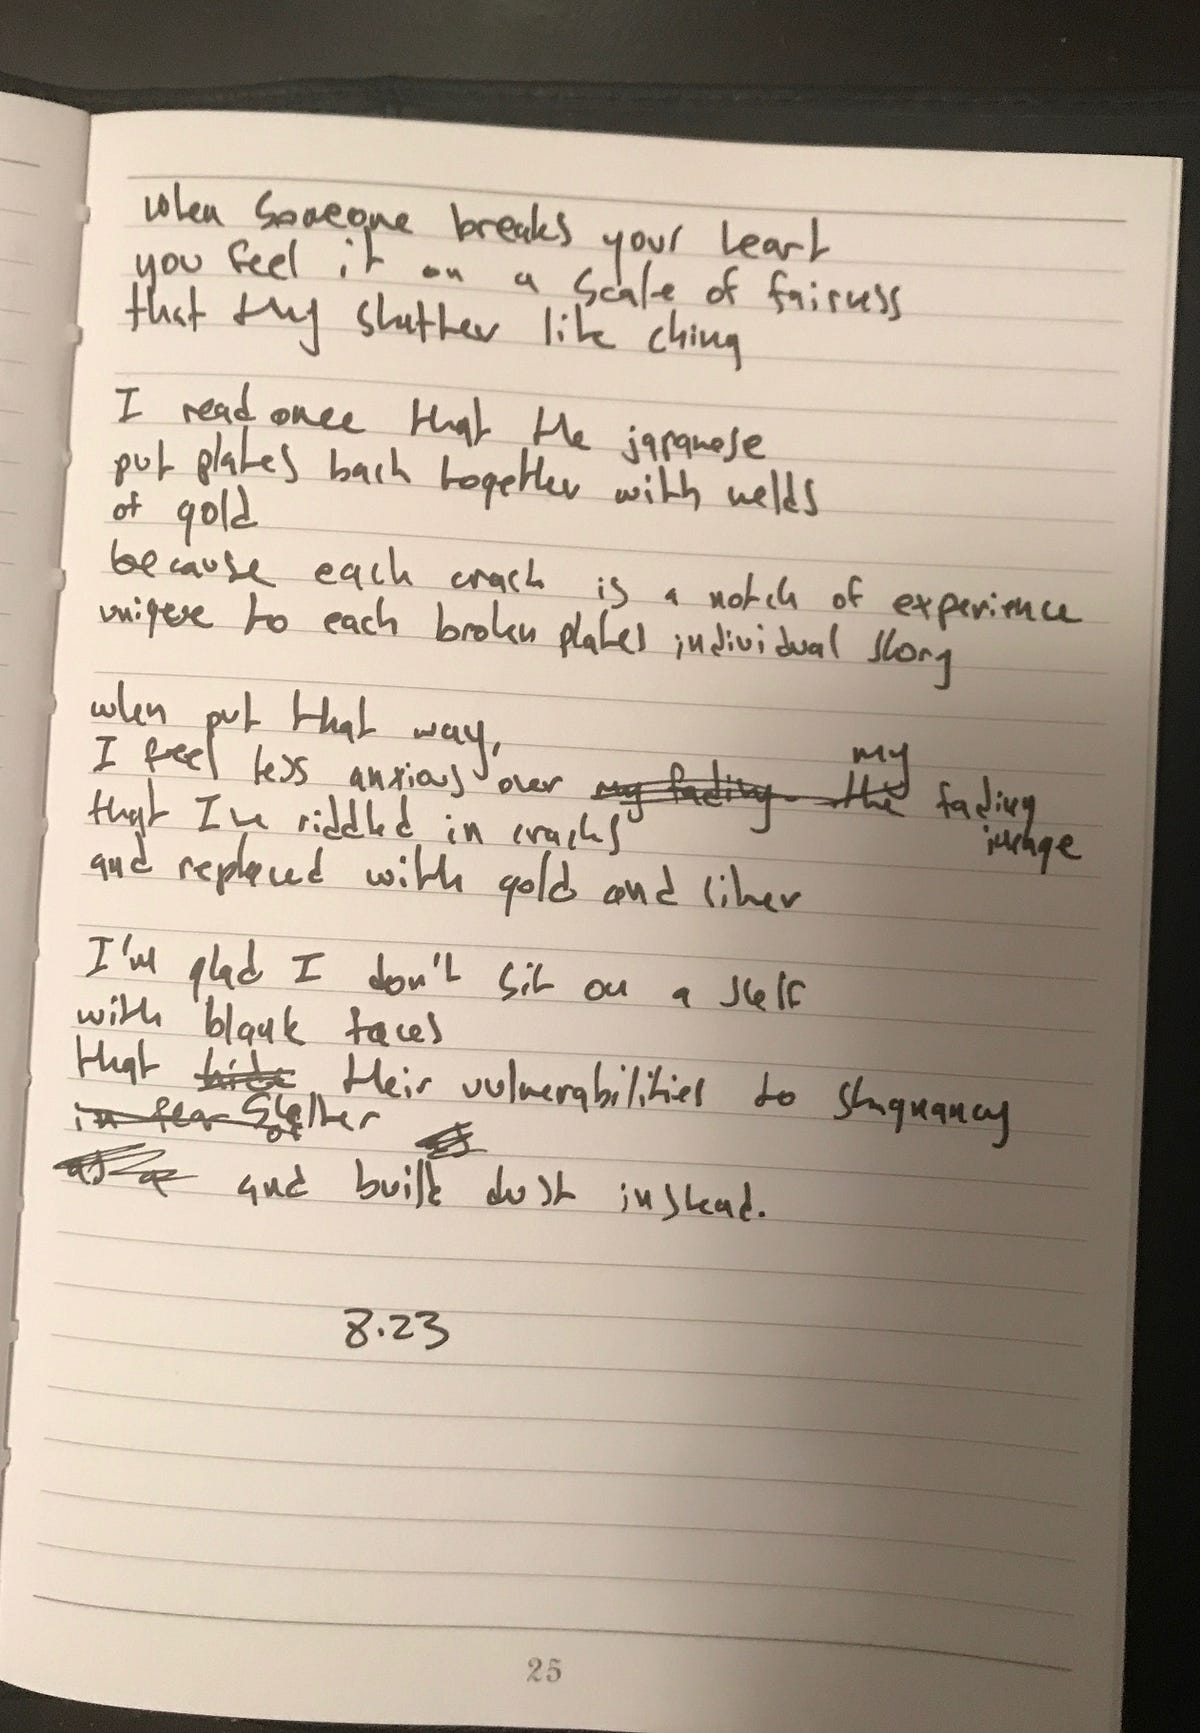 when someone breaks your heart
you feel it on a scale of fairness
that they shatter like china
I read once that the japanese
put plates back together with welds
of gold
because each crack is a notch of experience
unique to each broken plates individual story
when put that way,
I feel less anxious over my fading the my fading
image
that I've riddled in cracks
and replaced with gold and silver
I'm glad I don't sit on a shelf
with blank faces
that hide their vulnerabilities to stagnancy
in fear of shelter
and built dust instead.
8.23
25